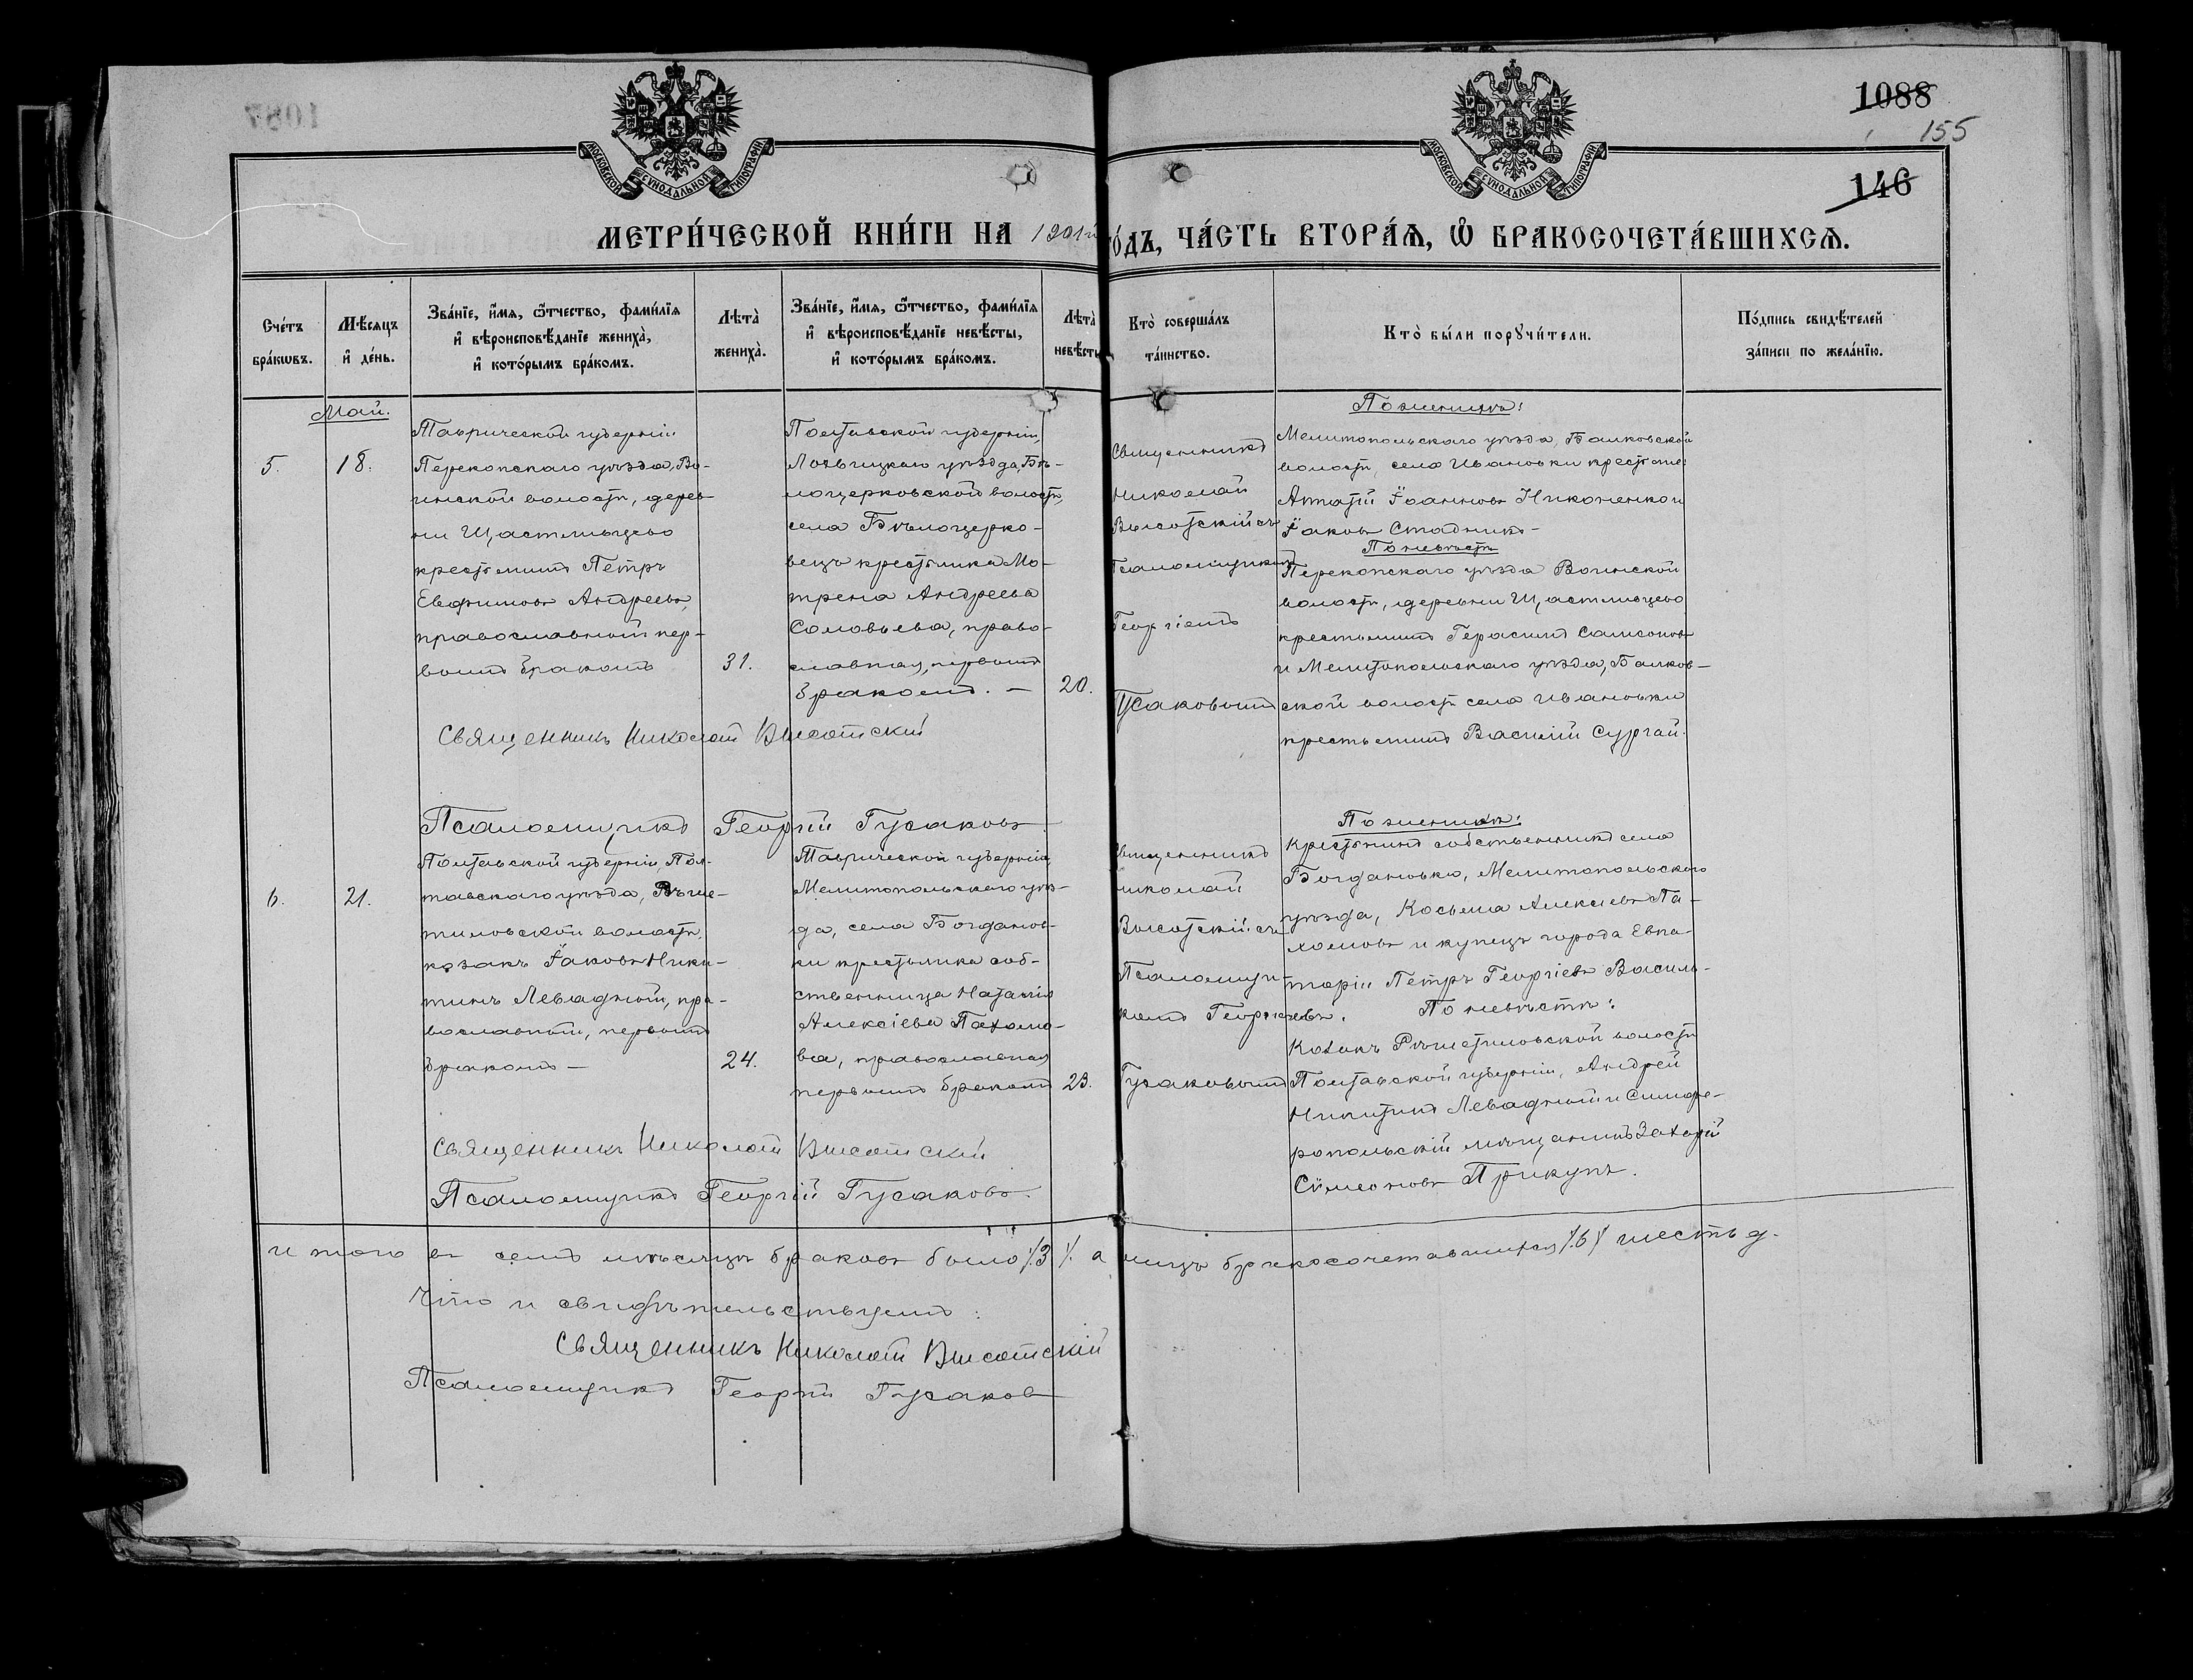 1087
1088
155
146
МОСКОВСКОЙ СѴНОДАЛЬНОЙ ТИПОГРАФІИ
МОСКОВСКОЙ СѴНОДАЛЬНОЙ ТИПОГРАФІИ
МЕТРИ́ЧЕСКОЙ КНИ́ГИ НА 1901й
ГО́ДЪ, ЧА́СТЬ ВТОРА́Ѧ, Ѽ БРАКОСОЧЕТА́ВШИХСѦ.
Сче́тъ
бра́кѡвъ.
Мѣ́сяцъ
и҆ де́нь.
Зва́нїе, и҆́мя, ѻ҆́тчество, фами́лїя
и҆ вѣроисповѣ́данїе жениха̀,
и҆ кото́рымъ бра́комъ.
Лѣта̀
жениха̀.
Зва́нїе, и҆́мя, ѻ҆́тчество, фами́лїя
и҆ вѣроисповѣ́данїе невѣ́сты,
и҆ кото́рымъ бра́комъ.
Лѣта̀
невѣ́сты
Кто̀ соверша́лъ
та́инство.
Кто̀ бы́ли порꙋчи́тели.
По́дпись свидѣ́телей
за́писи по жела́нїю.
Май.
5.
18.
Таврической губерніи
Перекопскаго уѣзда, Во-
инской волости, дерев
ни Щастливцево
крестьянинъ Петръ
Евфимовъ Андреевъ,
православный пер-
вымъ бракомъ
31.
Полтавской губерніи,
Лохвицкаго уѣзда, Бѣ-
лоцерковской волости,
села Бѣлоцерко-
вецъ крестьянка Мо-
трена Андреева
Соловьева, право-
славная, первымъ
бракомъ. —
20.
Священникъ
Николай
Высотскій съ
Псаломщикомъ
Георгіемъ
Гусаковымъ
По женихѣ:
Мелитопольскаго уѣзда, Балковской
волости, села Ивановки крестьяне:
Ипатій Іоанновъ Никоненко и
Іаковъ Стадникъ
По невѣстѣ
Перекопскаго уѣзда Воинской
волости, деревни Щастливцево
крестьянинъ Герасимъ Самсоновъ
и Мелитопольскаго уѣзда, Балков-
ской волости села Ивановки
крестьянинъ Василій Сургай.
Священникъ Николай Высотскій
Псаломщикъ Георгій Гусаковъ
6.
21.
Полтавской губерніи, Пол-
тавскаго уѣзда, Рѣше-
тиловской волости,
козакъ Іаковъ Ники-
тинъ Левадный, пра-
вославный, первымъ
бракомъ —
24.
Таврической губерніи,
Мелитопольскаго уѣз-
да, села Богданов-
ки крестьянка соб-
ственница Наталія
Алексіева Пахомо-
ва, православная
первымъ бракомъ
23.
Священникъ
Николай
Высотскій съ
Псаломщи-
комъ Георгіевъ.
Гусаковымъ
По женихѣ:
Крестьянинъ собственникъ села
Богдановки, Мелитопольскаго
уѣзда, Косьма Алексіевъ Па-
хомовъ и купецъ города Евпа-
торіи Петръ Георгіевъ Василь-
По невѣстѣ:
Козакъ Рѣшетиловской волости
Полтавской губерніи, Андрей
Никитинъ Левадный и Симфе-
ропольскій мѣщанинъ Захарій
Симеоновъ Прикупъ.
Священникъ Николай Высотскій
Псаломщикъ Георгій Гусаковъ.
Итого въ семъ мѣсяцѣ браковъ было /.3./. а лицъ бракосочетавшихся /.6./ шесть д.
Что и свидѣтельствуемъ:
Священникъ Николай Высотскій
Псаломщикъ Георгій Гусаковъ